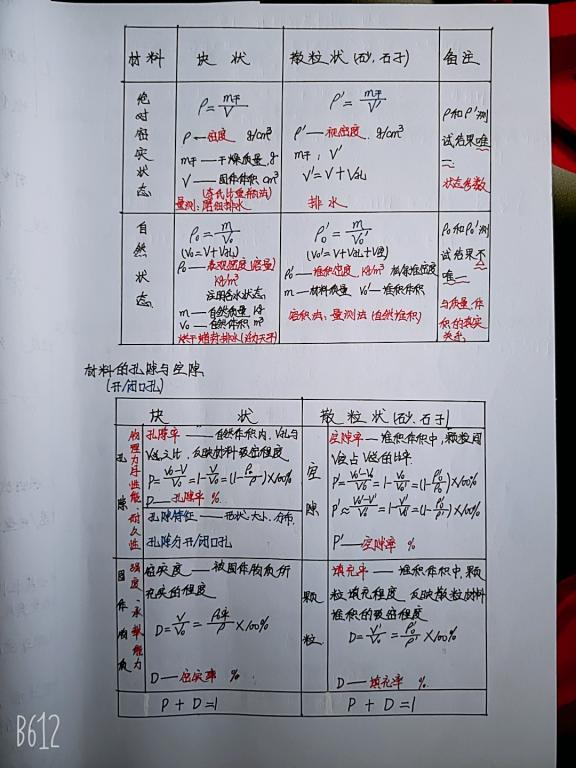 材料 块 状 散粒状(砂、石子) 备注
绝对密实状态
ρ=m干/V
ρ——密度 g/cm³
m干——干燥质量,g
V——固体体积 cm³
(李氏比重瓶法)
量测:磨细排水
ρ'=m干/V'
ρ'——视密度 g/cm³
m干; V'
V'=V+V闭
排水
ρ和ρ'测
试结果唯
一
自然状态
ρ₀=m/V₀
(V₀=V+V孔)
ρ₀——表观密度(容量)
kg/m³
注明含水状态
m——自然质量 kg
V₀——自然体积 m³
ρ₀'=m/V₀'
(V₀'=V+V孔+V空)
ρ₀'——堆积密度, kg/m³
m——材料质量 V₀'——堆积体积
容积法:量测法(自然堆积)
ρ₀和ρ₀'测
试结果不
唯一
与质量、体
积的真实
关系
材料的孔隙与空隙
(开/闭口孔)
块 状 散粒状(砂、石子)
孔隙
物理力学性能、耐久性
孔隙率——自然体积内,V孔与
V总之比,反映材料致密程度
P=(V₀-V)/V₀=1-V/V₀=(1-ρ₀/ρ)×100%
D——孔隙率 %
孔隙特征——形状、大小、分布
孔隙分开/闭口孔
空隙
空隙率——堆积体积中,颗粒间
V空占V总的比率
P'=(V₀'-V₀)/V₀'=1-V₀/V₀'=(1-ρ₀'/ρ₀)×100%
P'≈(V₀'-V')/V₀'=1-V'/V₀'=(1-ρ₀'/ρ')×100%
P'——空隙率 %
固体物质
强度、承载能力
密实度——被固体物质所
充实的程度
D=V/V₀=ρ₀干/ρ×100%
D——密实率 %
颗粒
填充率——堆积体积中,颗
粒填充程度,反映散粒材料
堆积的致密程度
D=V'/V₀'=ρ₀'/ρ'×100%
D——填充率 %
P+D=1 P+D=1
B612